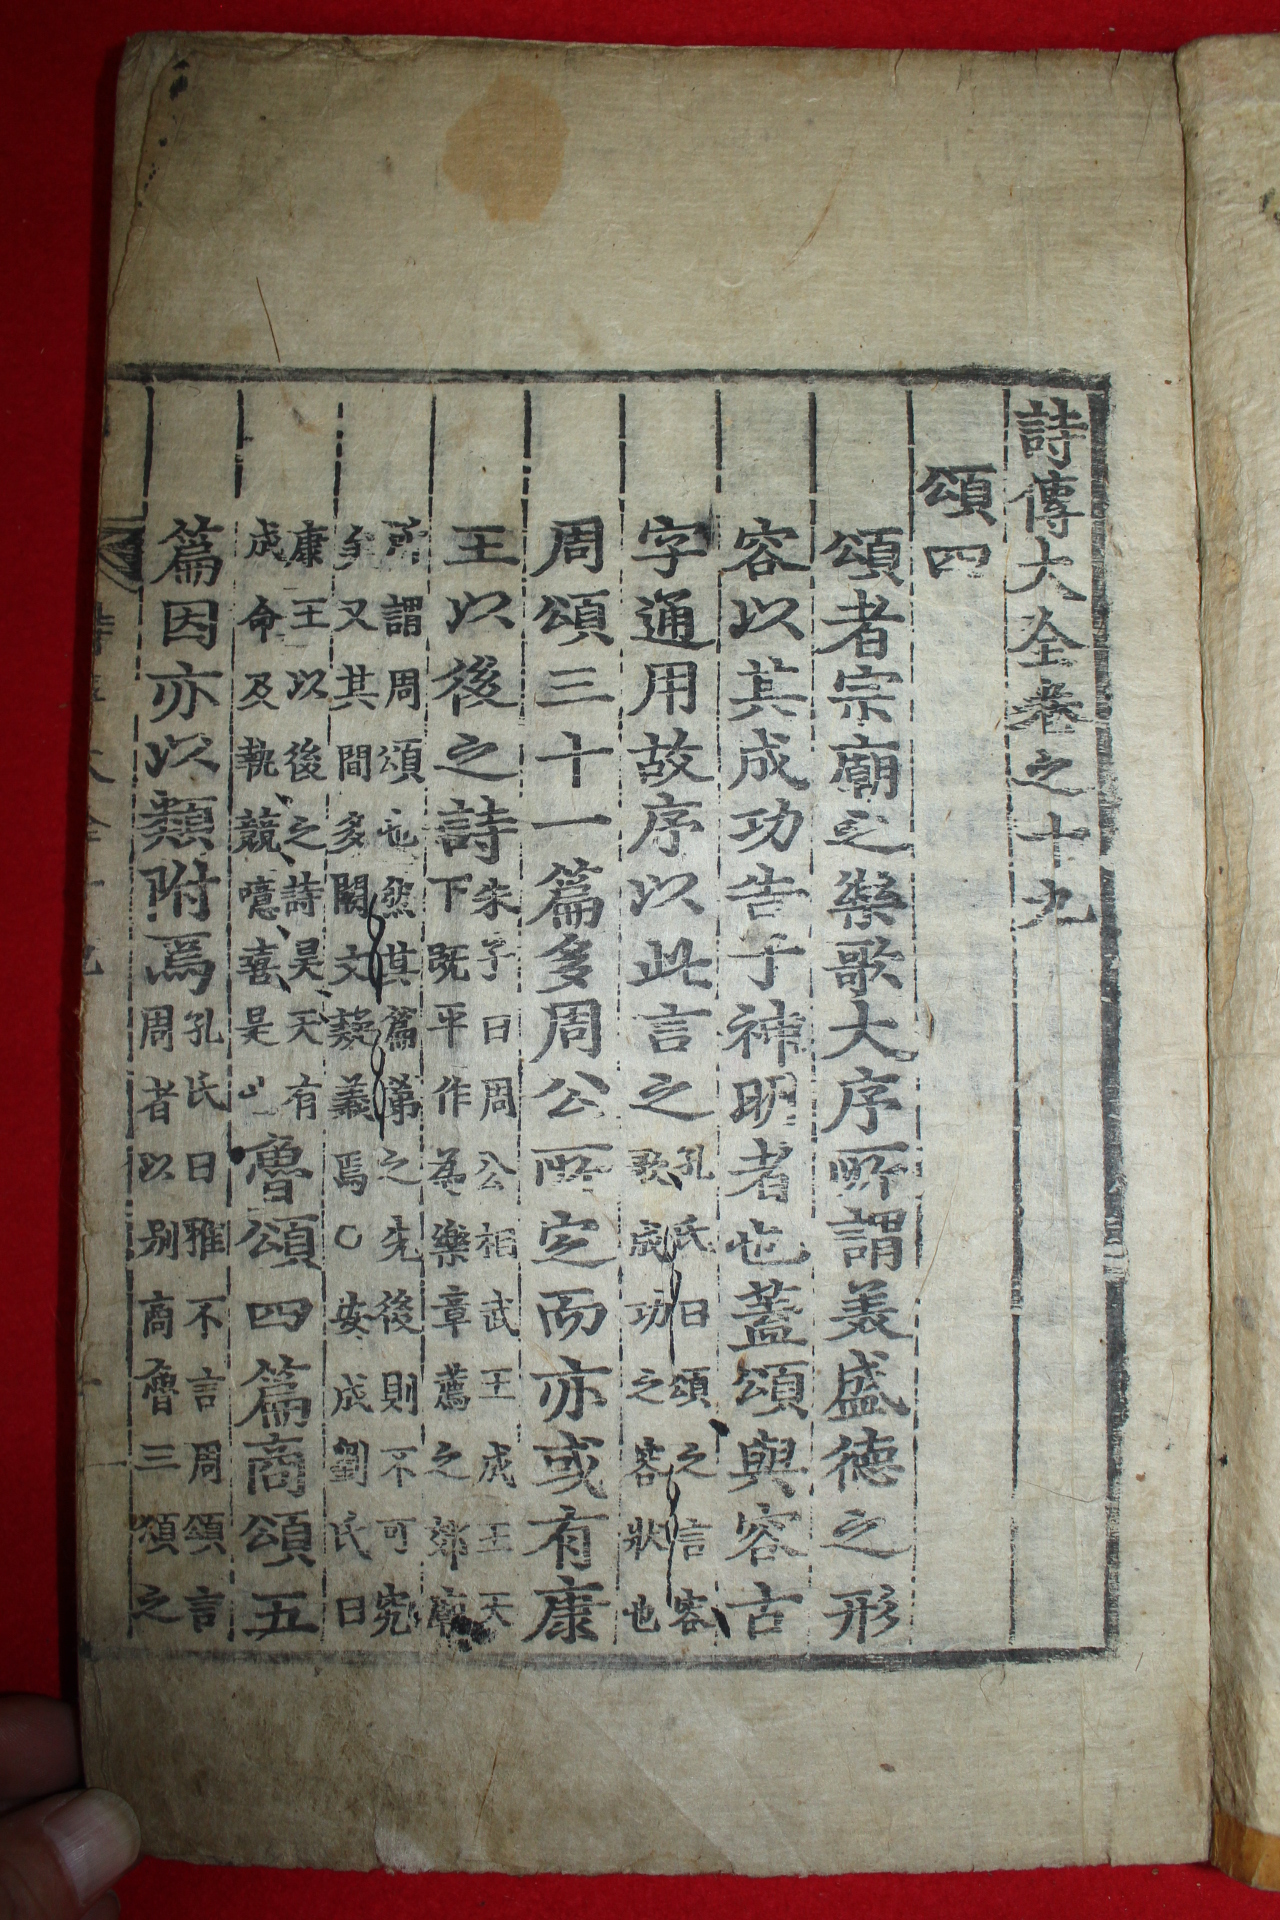 詩傳大全卷之十九
頌四
頌者宗廟之樂歌大序所謂美盛德之形
容以其成功告于神明者也蓋頌與容古
字通用故序以此言之孔氏曰頌之言容
歌成功之容狀也
周頌三十一篇多周公所定而亦或有康
王以後之詩朱子曰周公相武王成王天
下既平作為樂章薦之郊廟
所謂周頌也然其篇第之先後則不可究
矣又其間多闕文疑義焉○安成劉氏曰
康王以後之詩昊天有
成命及執競噫喜是
魯頌四篇商頌五
篇因亦以類附焉孔氏曰雅不言周頌言
周者以別商魯三頌之